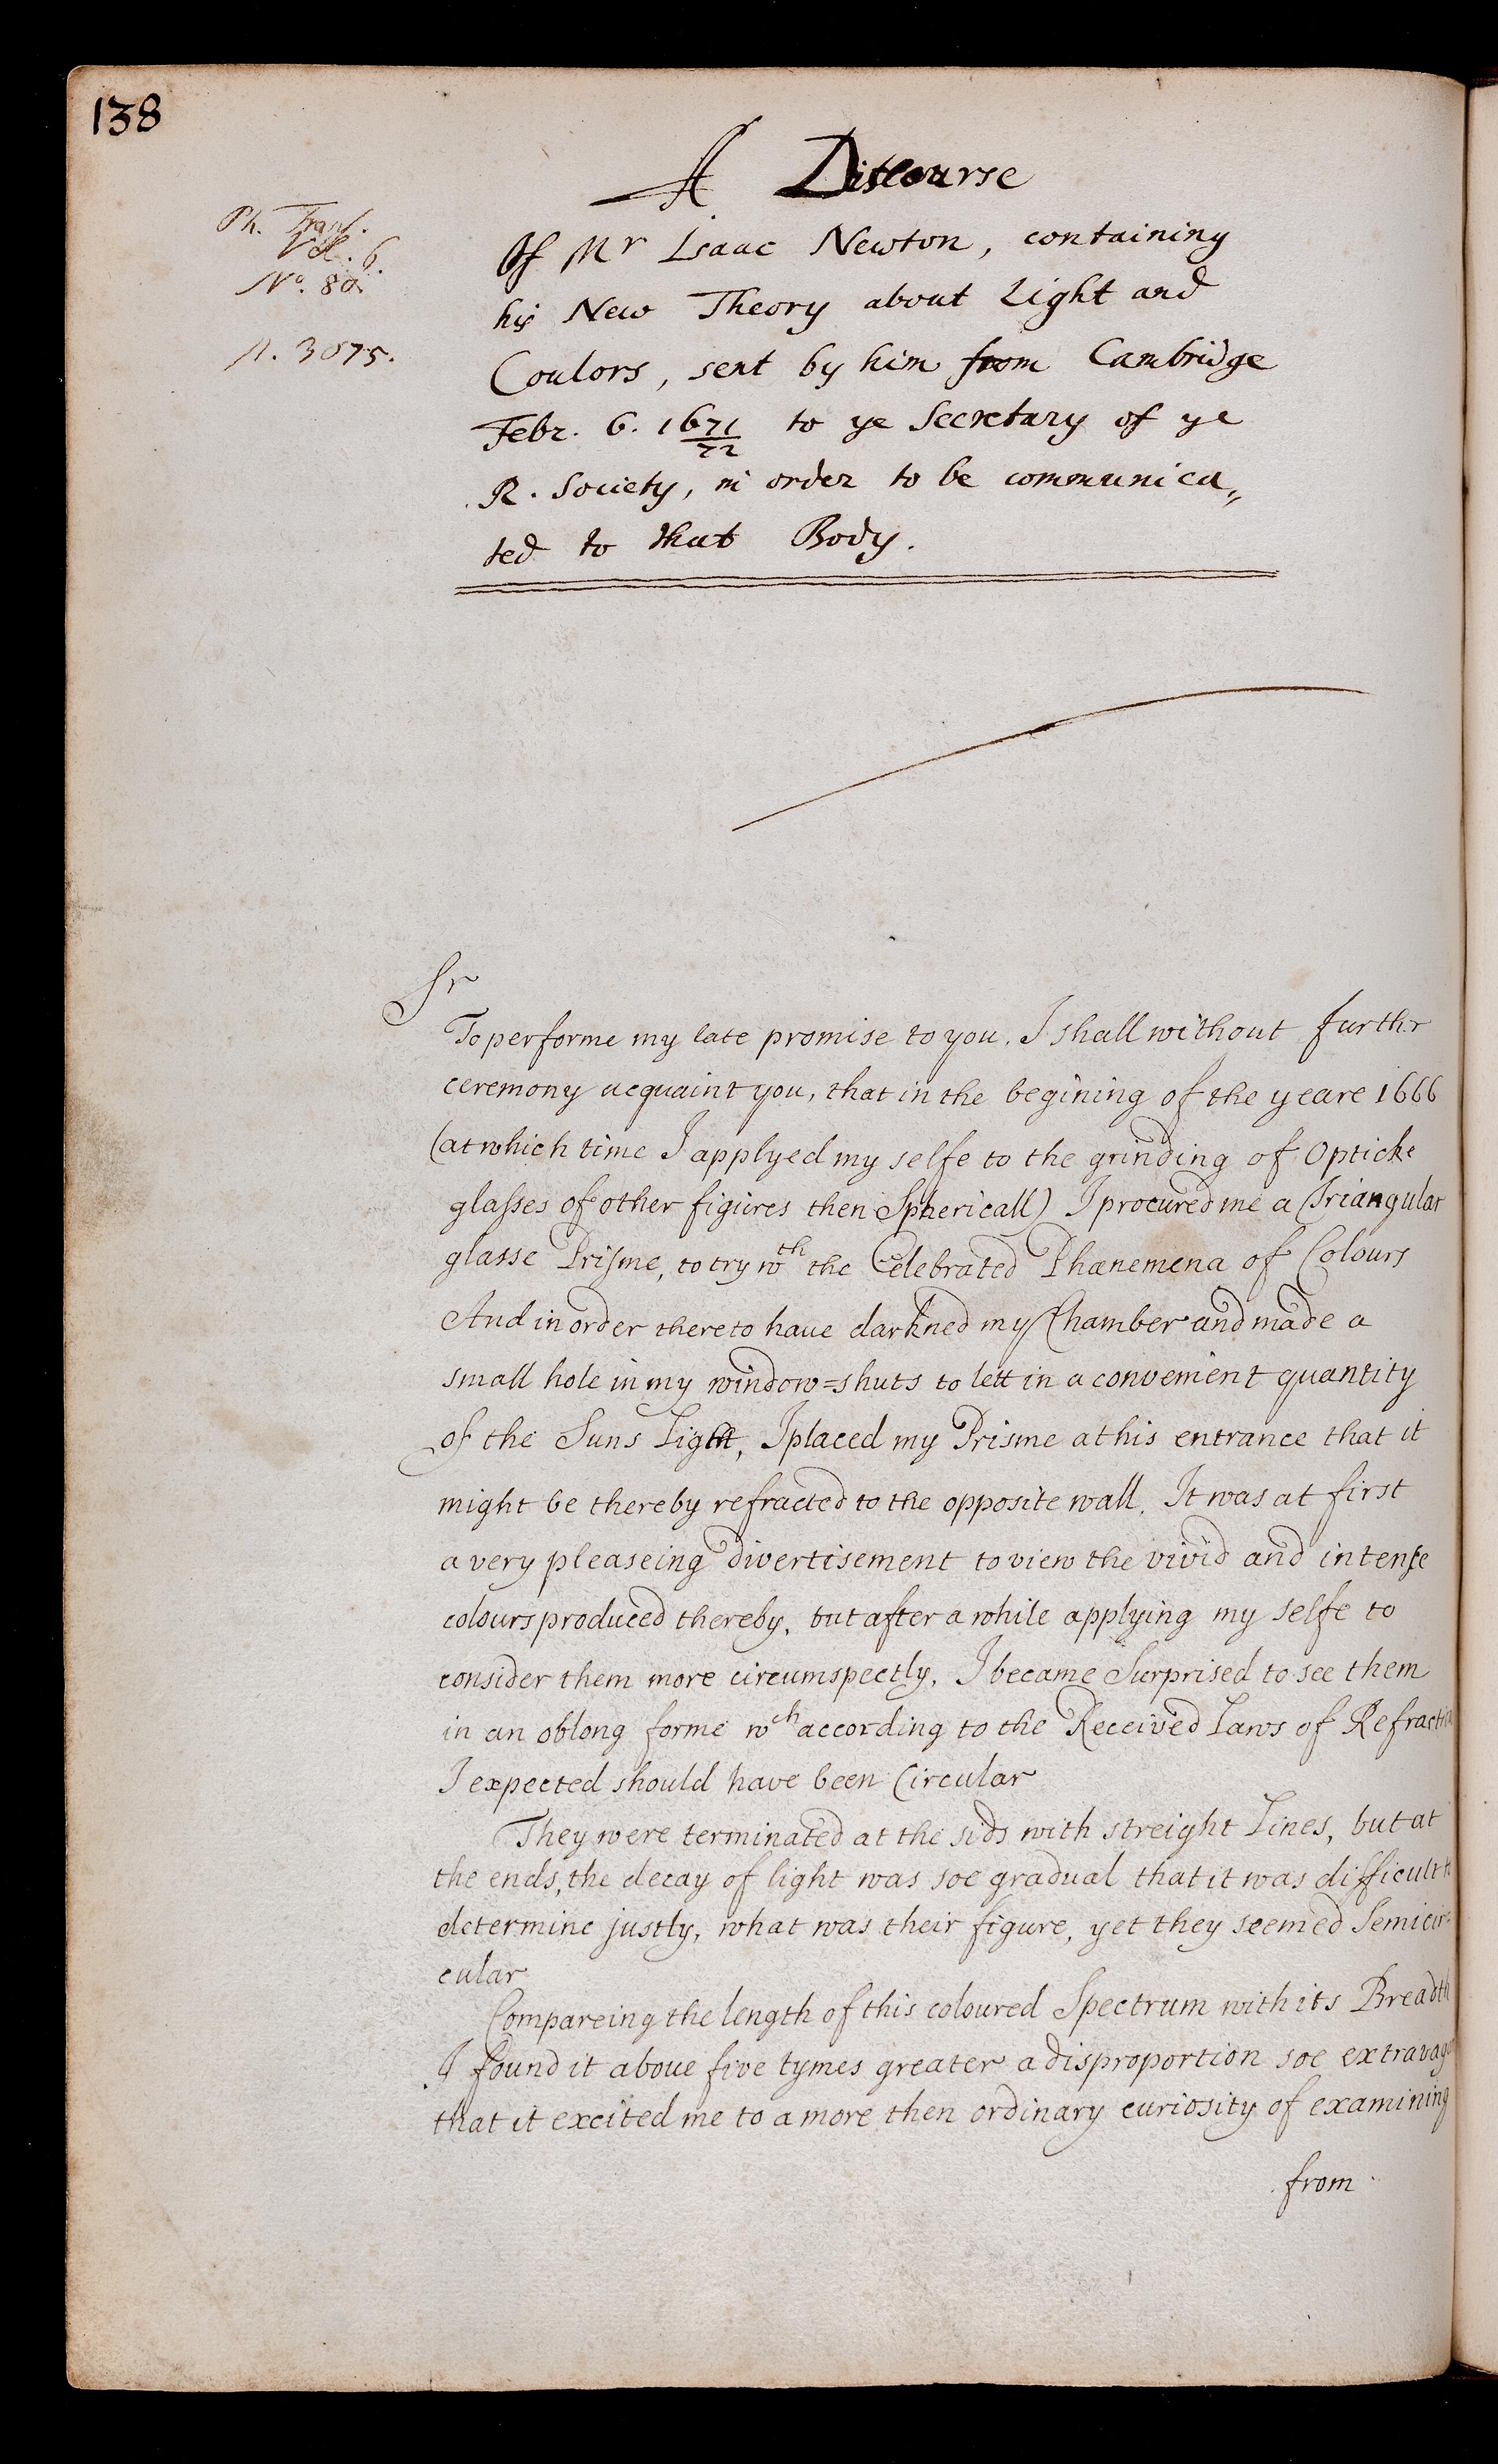 138
Ph. Trans.
Vol. 6.
No. 80.
n. 3075.
A Discourse
Of Mr Isaac Newton, containing
his New Theory about Light and
Coulors, sent by him from Cambridge
Febr. 6. 1671/72 to ye Secretary of ye
R. Society, in order to be communica„
ted to that Body.
Sr
To performe my late promise to you. I shall without furthr
ceremony acquaint you, that in the begining of the yeare 1666
(at which time I applyed my selfe to the grinding of Opticke
glasses of other figures then Sphericall) I procured me a Triangular
glasse Prisme, to try wth the Celebrated Phænemena of Colours
And in order thereto have darkned my Chamber and made a
small hole in my window=shuts to lett in a convenient quantity
of the Suns Light, I placed my Prisme at his entrance that it
might be thereby refracted to the opposite wall. It was at first
a very pleaseing divertisement to view the vivid and intense
colours produced thereby, but after a while applying my selfe to
consider them more circumspectly, I became Surprised to see them
in an oblong forme wch according to the Received Laws of Refractio
I expected should have been Circular
They were terminated at the sids with streight Lines, but at
the ends, the decay of light was soe gradual that it was difficult to
determine justly, what was their figure, yet they seemed Semicir=
cular
Compareing the length of this coloured Spectrum with its Breadth
I found it above five tymes greater a disproportion soe extravaga
that it excited me to a more then ordinary curiosity of examining
from